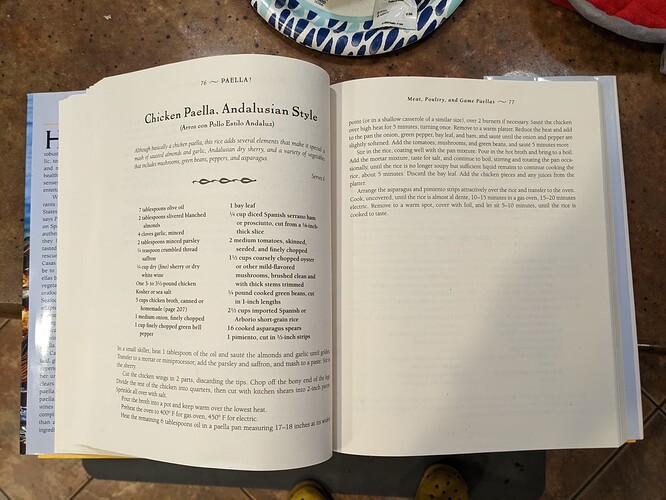 76 ~ PAELLA!
Chicken Paella, Andalusian Style
(Arroz con Pollo Estilo Andaluz)
Although basically a chicken paella, this rice adds several elements that make it special: a
mash of sautéed almonds and garlic, Andalusian dry sherry, and a variety of vegetables
that includes mushrooms, green beans, peppers, and asparagus.
Serves
2 tablespoons olive oil
2 tablespoons slivered blanched
almonds
4 cloves garlic, minced
2 tablespoons minced parsley
teaspoon crumbled thread
saffron
cup dry (fino) sherry or dry
white wine
One 3- to 3½-pound chicken
Kosher or sea salt
5 cups chicken broth, canned or
homemade (page 207)
1 medium onion, finely chopped
1 cup finely chopped green bell
pepper
1 bay leaf
¼ cup diced Spanish serrano ham
or prosciutto, cut from a
thick slice
2 medium tomatoes, skinned,
seeded, and finely chopped
1½ cups coarsely chopped oyster
or other mild-flavored
mushrooms, brushed clean and
with thick stems trimmed
pound cooked green beans, cut
in 1-inch lengths
2½ cups imported Spanish or
Arborio short-grain rice
16 cooked asparagus spears
1 pimiento, cut in ½-inch strips
In a small skillet, heat 1 tablespoon of the oil and sauté the almonds and garlic until golden.
Transfer to a mortar or miniprocessor, add the parsley and saffron, and mash to a paste. Stir in
the sherry.
Cut the chicken wings in 2 parts, discarding the tips. Chop off the bony end of the legs.
Divide the rest of the chicken into quarters, then cut with kitchen shears into 2-inch pieces.
Sprinkle all over with salt.
Pour the broth into a pot and keep warm over the lowest heat.
Preheat the oven to 400° F for gas oven, 450° F for electric.
Heat the remaining 6 tablespoons oil in a paella pan measuring 17–18 inches at its widest
Meat, Poultry, and Game Paellas ~ 77
point (or in a shallow casserole of a similar size), over 2 burners if necessary. Sauté the chicken
over high heat for 5 minutes, turning once. Remove to a warm platter. Reduce the heat and add
to the pan the onion, green pepper, bay leaf, and ham, and sauté until the onion and pepper are
slightly softened. Add the tomatoes, mushrooms, and green beans, and sauté 5 minutes more.
Stir in the rice, coating well with the pan mixture. Pour in the hot broth and bring to a boil.
Add the mortar mixture, taste for salt, and continue to boil, stirring and rotating the pan occa-
sionally, until the rice is no longer soupy but sufficient liquid remains to continue cooking the
rice, about 5 minutes. Discard the bay leaf. Add the chicken pieces and any juices from the
platter.
Arrange the asparagus and pimiento strips attractively over the rice and transfer to the oven.
Cook, uncovered, until the rice is almost al dente, 10–15 minutes in a gas oven, 15–20 minutes
electric. Remove to a warm spot, cover with foil, and let sit 5–10 minutes, until the rice is
cooked to taste.